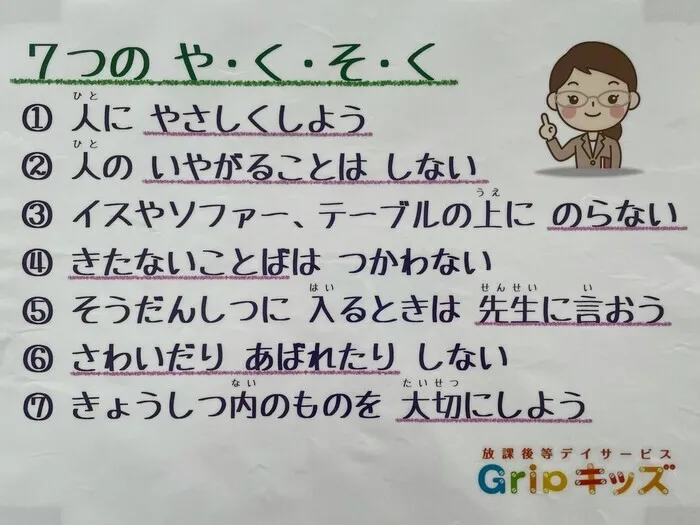 7つの や・く・そ・く
① 人に やさしくしよう
② 人の いやがることは しない
③ イスやソファー、テーブルの上に のらない
④ きたないことばは つかわない
⑤ そうだんしつに 入るときは 先生に言おう
⑥ さわいだり あばれたり しない
⑦ きょうしつ内のものを 大切にしよう
放課後等デイサービス
Gripキッズ